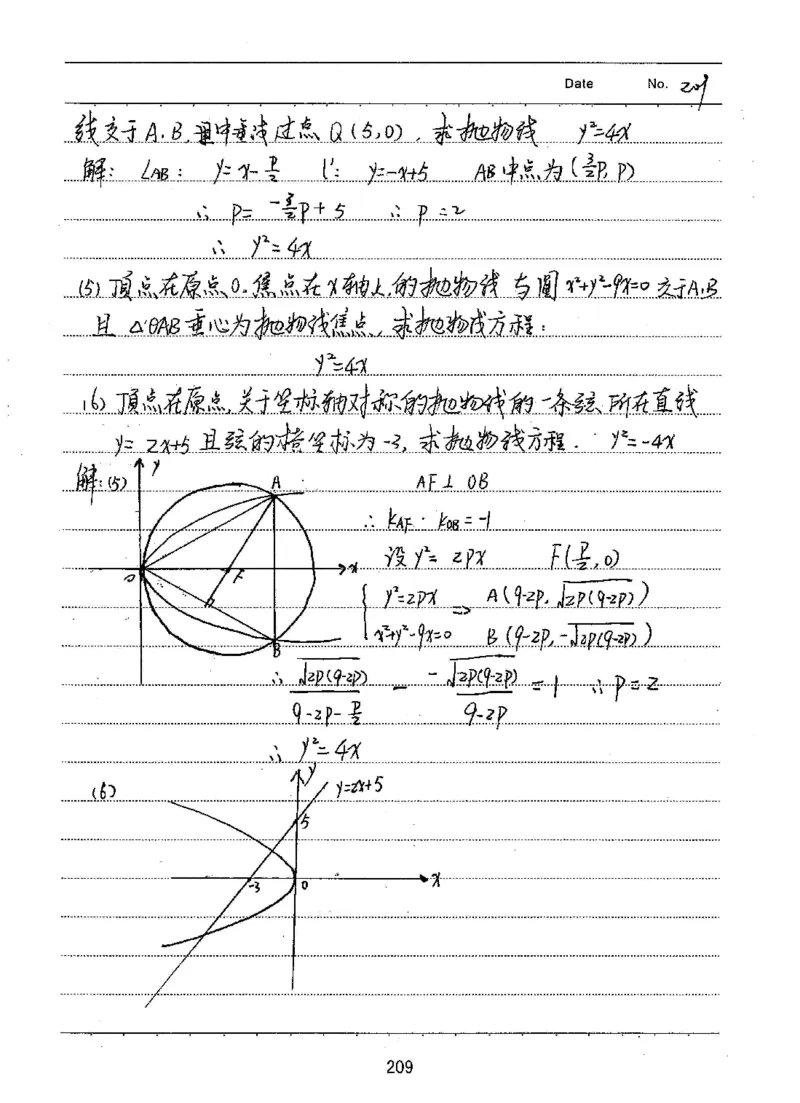 Date No. 209
线交于A.B,且中垂线过点Q(5,0),求抛物线 y²=4x
解: L_AB: y=x-p/2 l': y=-x+5 AB中点为(3/2p, p)
∴ p= -3/2p+5 ∴ p=2
∴ y²=4x
(5)顶点在原点O.焦点在x轴上的抛物线与圆x²+y²-9x=0交于A.B
且△OAB垂心为抛物线焦点,求抛物线方程:
y²=4x
(6)顶点在原点,关于坐标轴对称的抛物线的一条弦所在直线
y=2x+5且弦的横坐标为-3,求抛物线方程. y²=-4x
解:(5) y A AF⊥OB
∴ k_AF · k_OB = -1
设y²=2px F(p/2,0)
O F x
{ y²=2px => A(9-2p, √2p(9-2p))
x²+y²-9x=0 B(9-2p, -√2p(9-2p))
B
∴ √2p(9-2p)/(9-2p-p/2) - -√2p(9-2p)/(9-2p) =1 ∴ p=2
∴ y²=4x
(6) y y=2x+5
5
-3 0 x
209